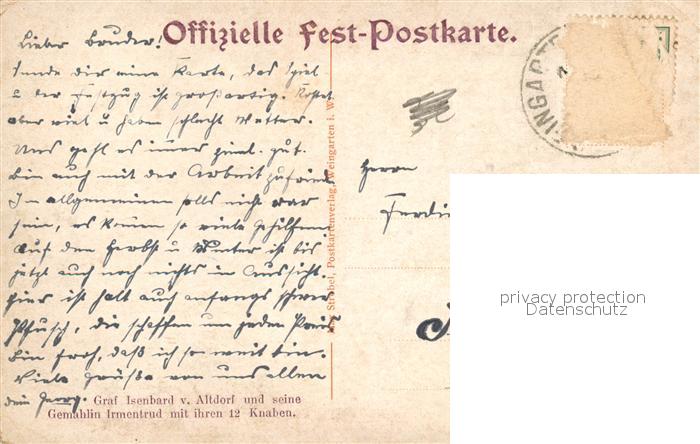 Offizielle Fest-Postkarte.
Lieber Bruder!
Sende dir eine Karte, das Spiel
u der Festzug ist großartig. Kostet
aber viel u haben schlecht Wetter.
Uns geht es immer ziml. gut.
bin auch mit der Arbeit zufried.
Im allgemeinen solls nicht war
sein, es kommen so viele Gehilfen.
Auf den Herbst u Winter ist bis
jetzt auch noch nichts in Aussicht.
hier ist halt auch anfangs schwer
Pfusch, die schaffen um jeden Preis
bin froh, daß ich so weit bin.
Viele Grüße von uns allen
dein Georg.
Graf Isenbard v. Altdorf und seine
Gemahlin Irmentrud mit ihren 12 Knaben.
Strobel, Postkartenverlag, Weingarten i. W.
INGART
Herrn
Ferdi
privacy protection
Datenschutz